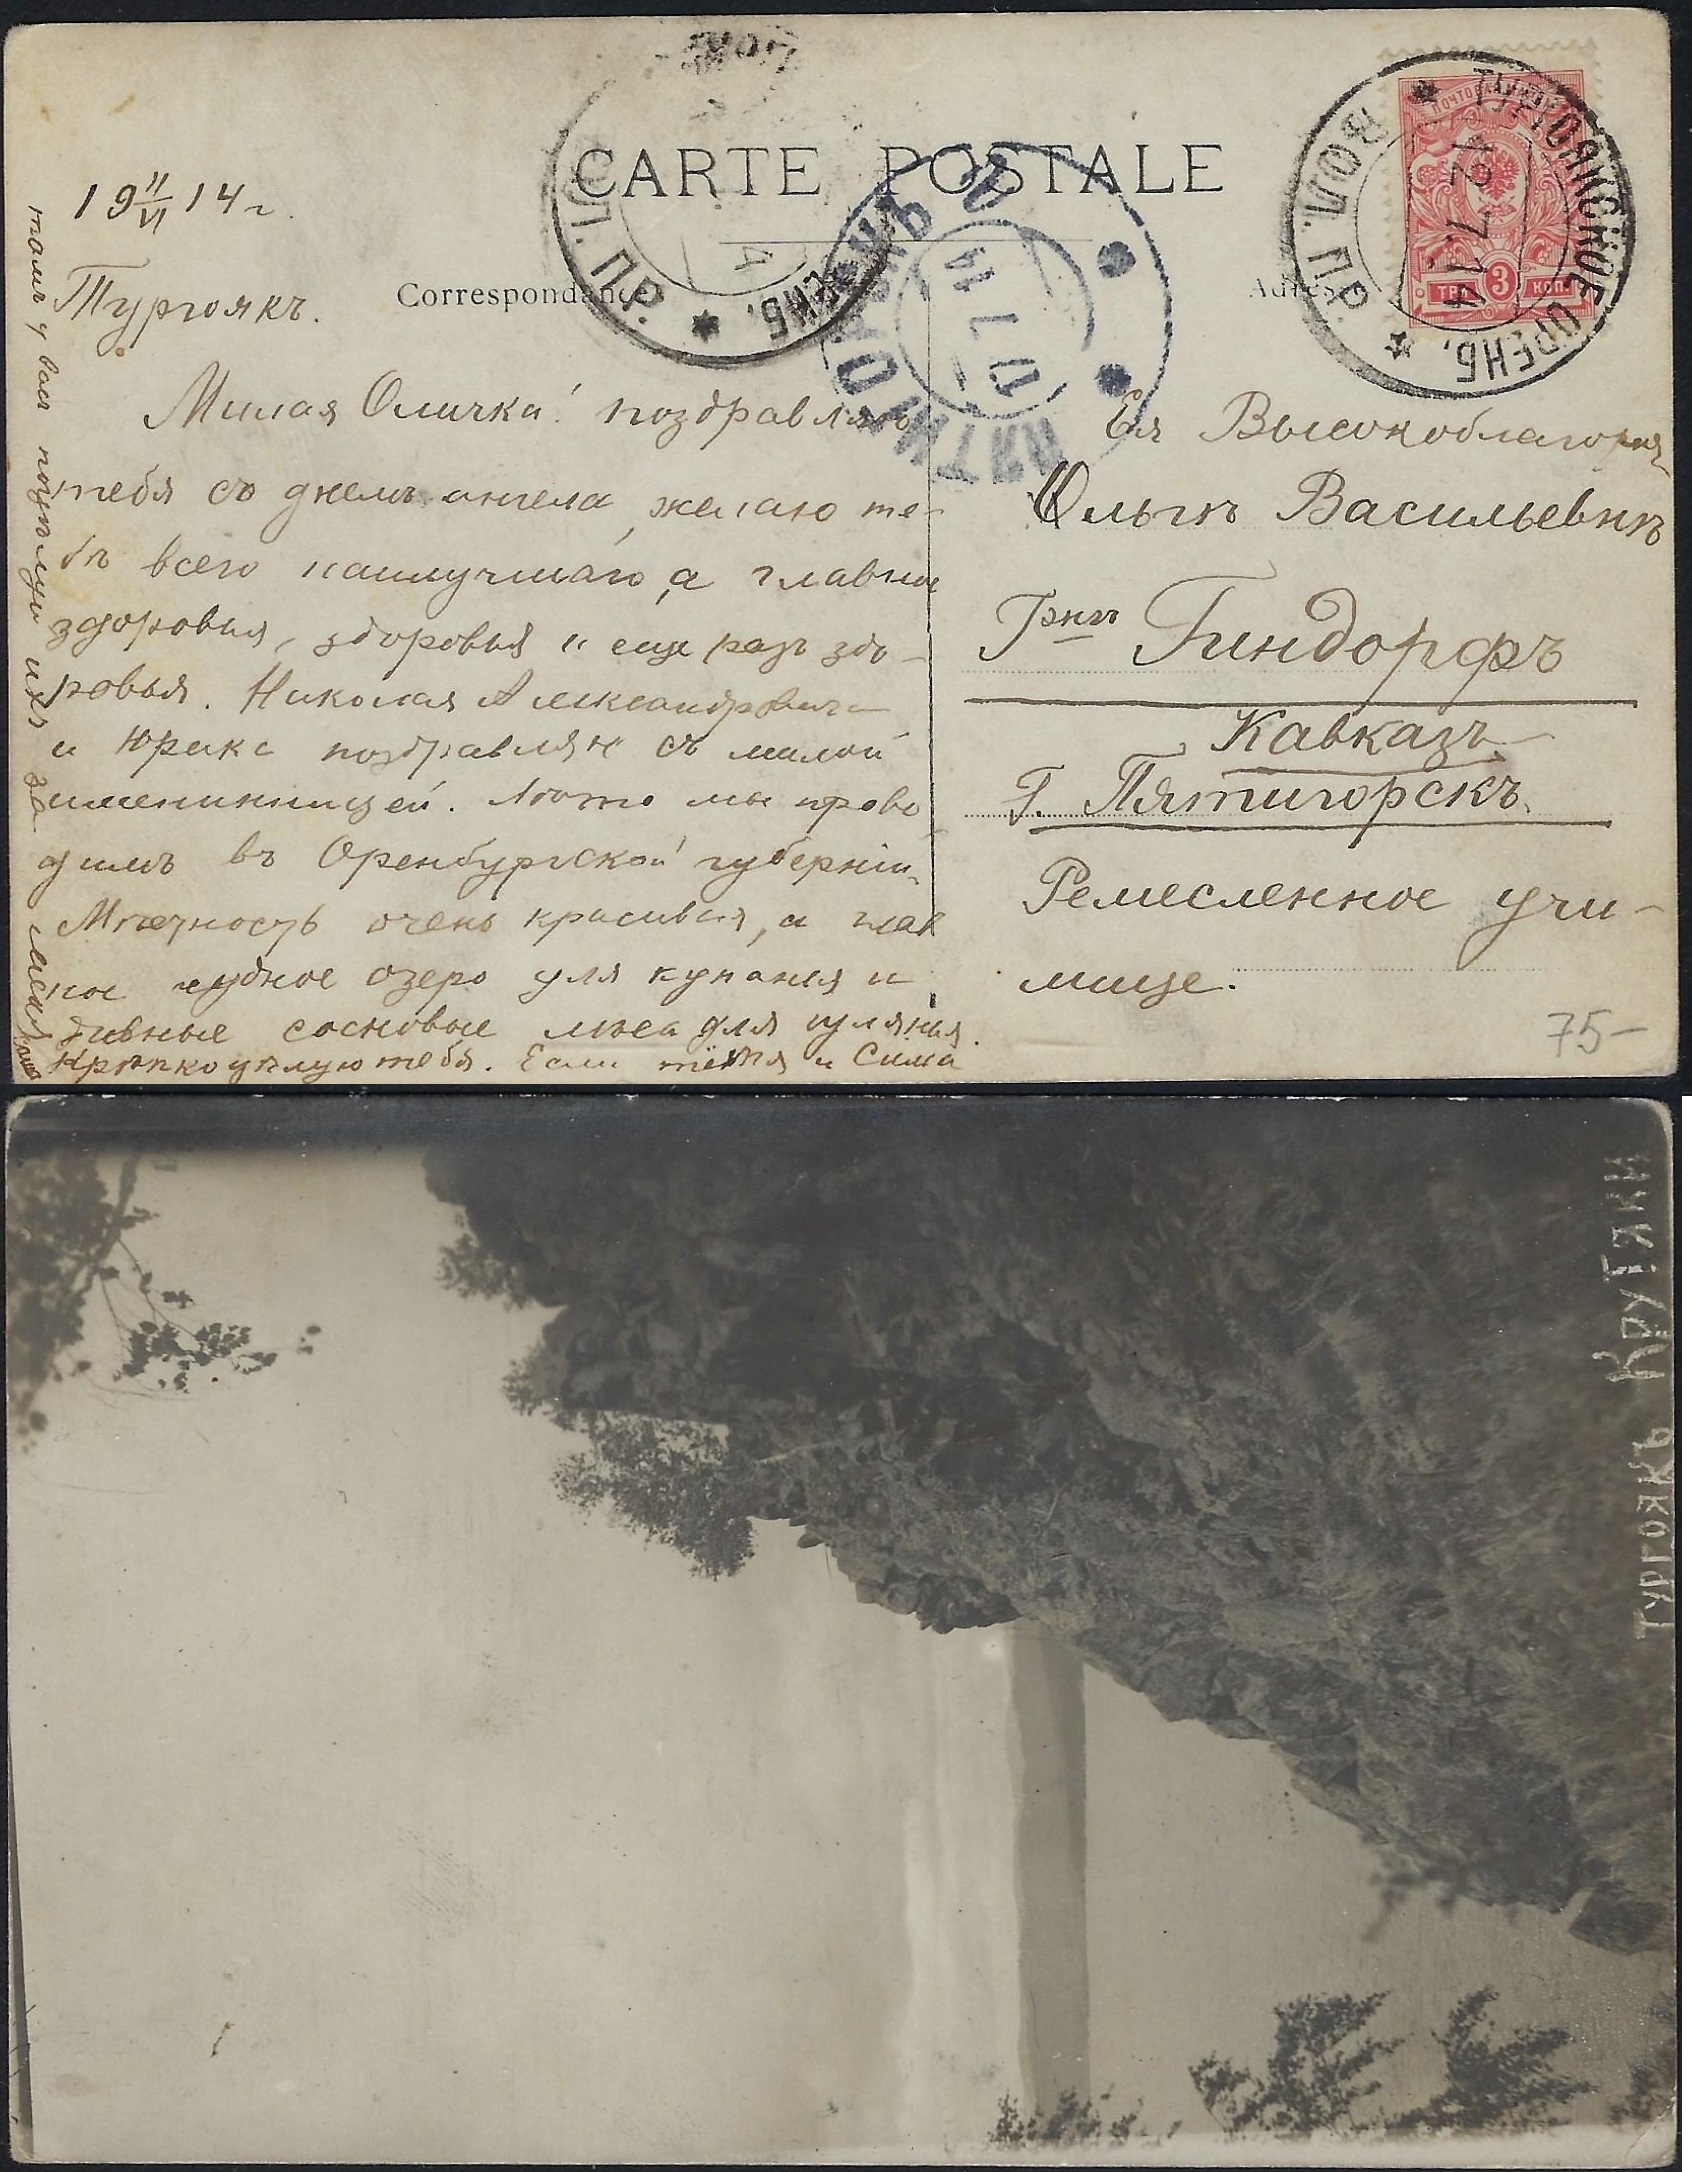 CARTE POSTALE
Correspondance
Adres
19 11/VI 14 г.
Тургоякъ.
Милая Оличка! поздравляю
тебя съ днемъ ангела, желаю те-
бѣ всего наилучшаго, а главное
здоровья, здоровья и еще разъ здо-
ровья. Николая Александровича
и Юрика поздравляю съ милой
именинницей. Лѣто мы прово-
димъ въ Оренбургской губерніи.
Мѣстность очень красивая, а глав
ное чудное озеро для купанья и
дивные сосновые лѣса для гулянья.
Крѣпко цѣлую тебя. Если тётя и Сима
тамъ у вас поцѣлуй ихъ за меня
Ея Высокоблагород
Ольгѣ Васильевнѣ
Гжѣ Гиндорфъ
Кавказъ
Г. Пятигорскъ.
Ремесленное учи-
лище.
75-
ТУРГОЯКСКОЕ ОРЕНБ.
ВОЛ. ПР.
12 7 14
ПОЧТОВАЯ МАРКА
ТРИ 3 КОП
ВОЛ. ПР.
ОРЕНБ.
4
ПЯТИГОРСКЪ
17 7 14
КРУТИКИ
ТУРГОЯКЪ